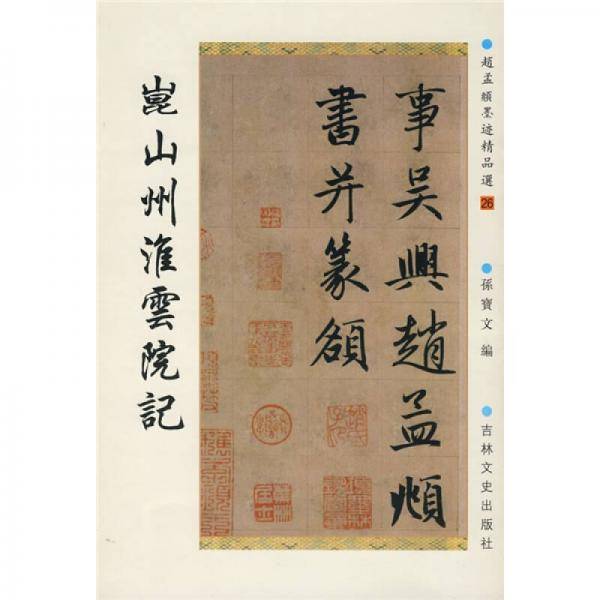 趙孟頫墨迹精品選 26
孫寶文 編
吉林文史出版社
事吳興趙孟頫
書并篆額
崑山州淮雲院記